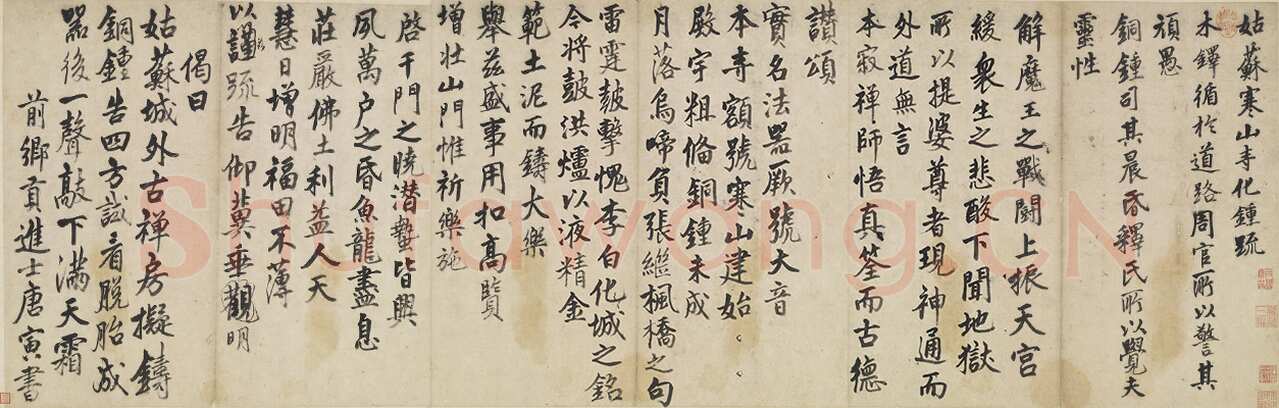 姑蘇寒山寺化鍾疏
木鐸循於道路周官所以警其
頑愚
銅鍾司其晨昏釋氏所以覺夫
靈性
解魔王之戰鬪上振天宮
緩衆生之悲酸下聞地獄
所以提婆尊者現神通而
外道無言
本寂禅師悟真筌而古德
讃頌
實名法器厥號大音
本寺額號寒山建始
殿宇粗俻銅鍾未成
月落烏啼負張繼楓橋之句
雷霆皷擊愧李白化城之銘
今将鼓洪爐以液精金
範土泥而鑄大樂
舉兹盛事用扣高賢
增壮山門惟祈樂施
啓千門之曉潜蟄皆興
夙萬户之昏魚龍盡息
莊嚴佛土利益人天
慧日增明福田不薄
以謹䟽告仰冀垂觀明
偈曰
姑蘇城外古禅房擬鑄
銅鍾告四方試看脱胎成
器後一聲敲下满天霜
前鄉貢進士唐寅書
Shufawang.CN